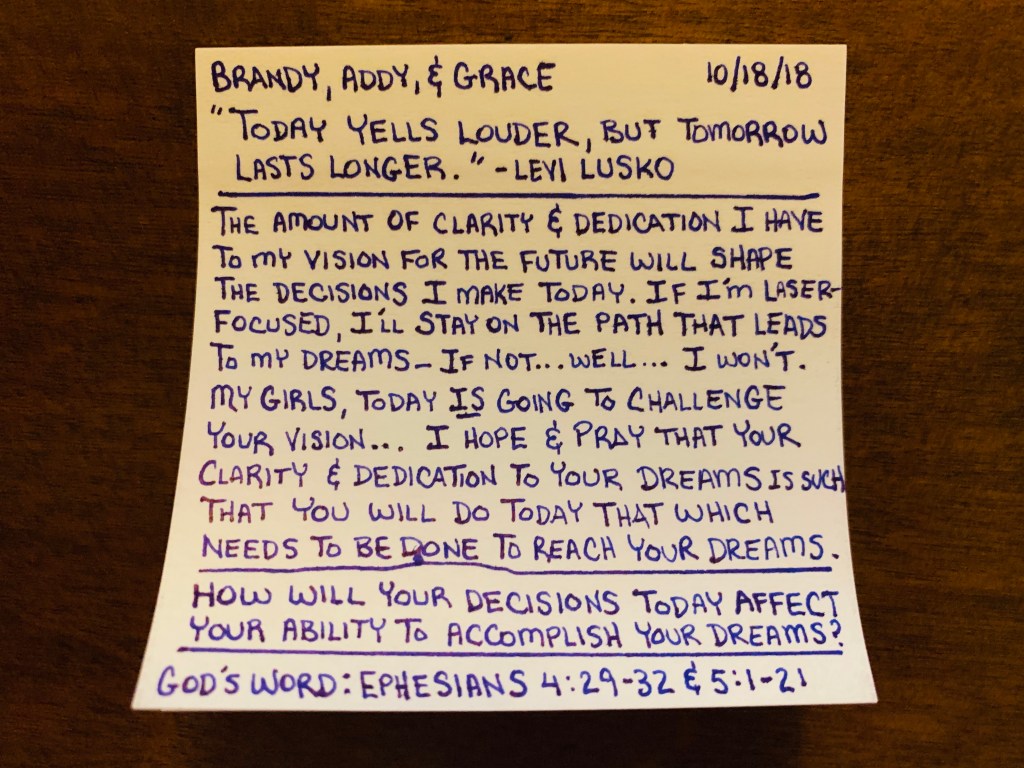 BRANDY, ADDY, & GRACE 10/18/18
"TODAY YELLS LOUDER, BUT TOMORROW
LASTS LONGER." - LEVI LUSKO
THE AMOUNT OF CLARITY & DEDICATION I HAVE
TO MY VISION FOR THE FUTURE WILL SHAPE
THE DECISIONS I MAKE TODAY. IF I'M LASER-
FOCUSED, I'LL STAY ON THE PATH THAT LEADS
TO MY DREAMS - IF NOT... WELL... I WON'T.
MY GIRLS, TODAY IS GOING TO CHALLENGE
YOUR VISION... I HOPE & PRAY THAT YOUR
CLARITY & DEDICATION TO YOUR DREAMS IS SUCH
THAT YOU WILL DO TODAY THAT WHICH
NEEDS TO BE DONE TO REACH YOUR DREAMS.
HOW WILL YOUR DECISIONS TODAY AFFECT
YOUR ABILITY TO ACCOMPLISH YOUR DREAMS?
GOD'S WORD: EPHESIANS 4:29-32 & 5:1-21